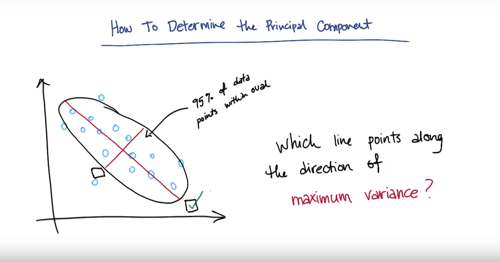 How To Determine the Principal Component
95% of data
points within oval
which line points along
the direction of
maximum variance?